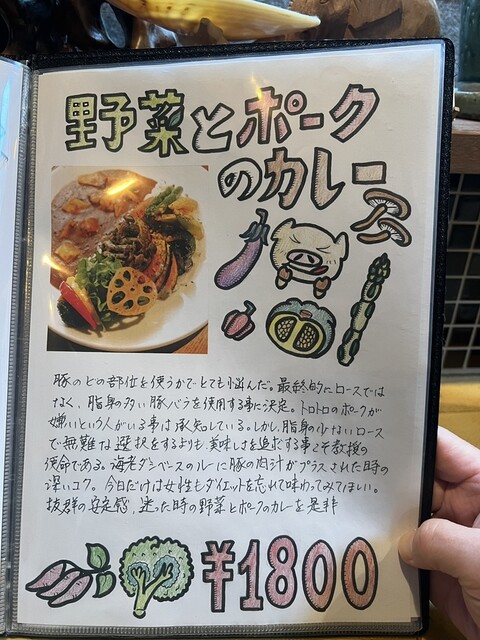 野菜とポーク
のカレー
豚のどの部位を使うかでとても悩んだ。最終的にロースでは
なく、脂身の多い豚バラを使用する事に決定。トロトロのポークが
嫌いという人がいる事は承知している。しかし、脂身の少ないロース
で無難な選択をするよりも、美味しさを追求する事こそ教授の
使命である。海老ダシベースのルーに豚の肉汁がプラスされた時の
深いコク。今日だけは女性もダイエットを忘れて味わってみてほしい。
抜群の安定感、迷った時の野菜とポークのカレーを是非
¥1800